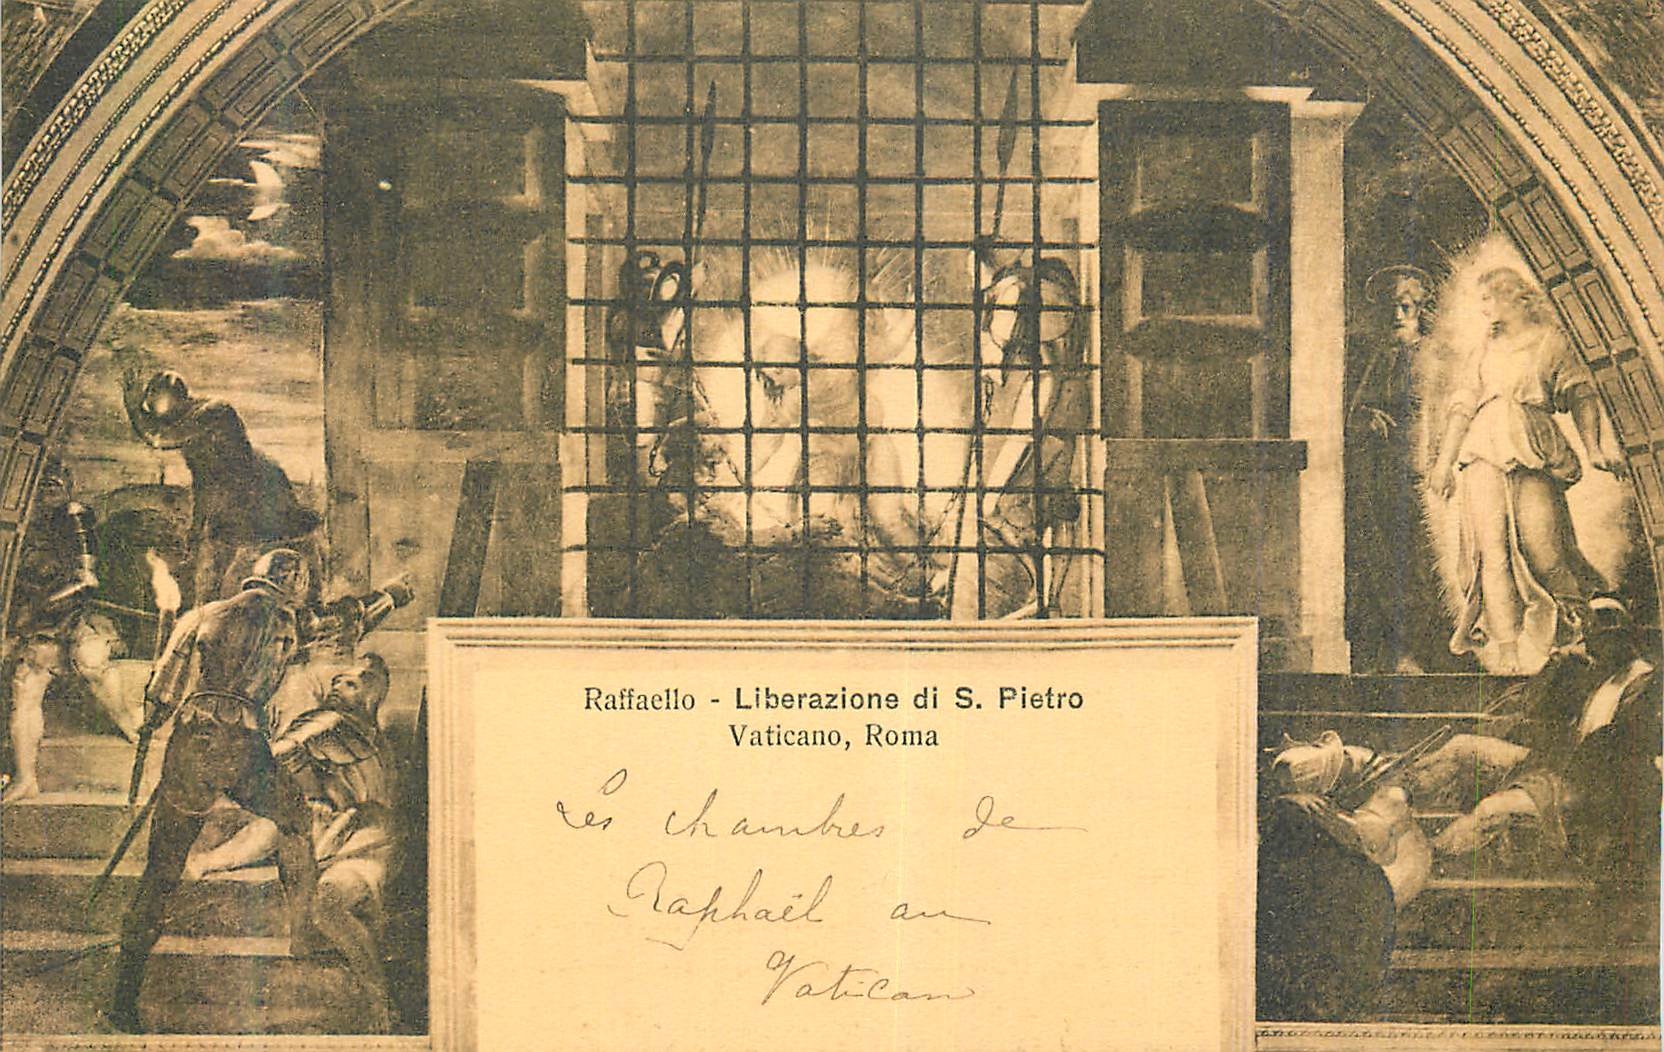 Raffaello - Liberazione di S. Pietro
Vaticano, Roma
Les chambres de
Raphaël au
Vatican